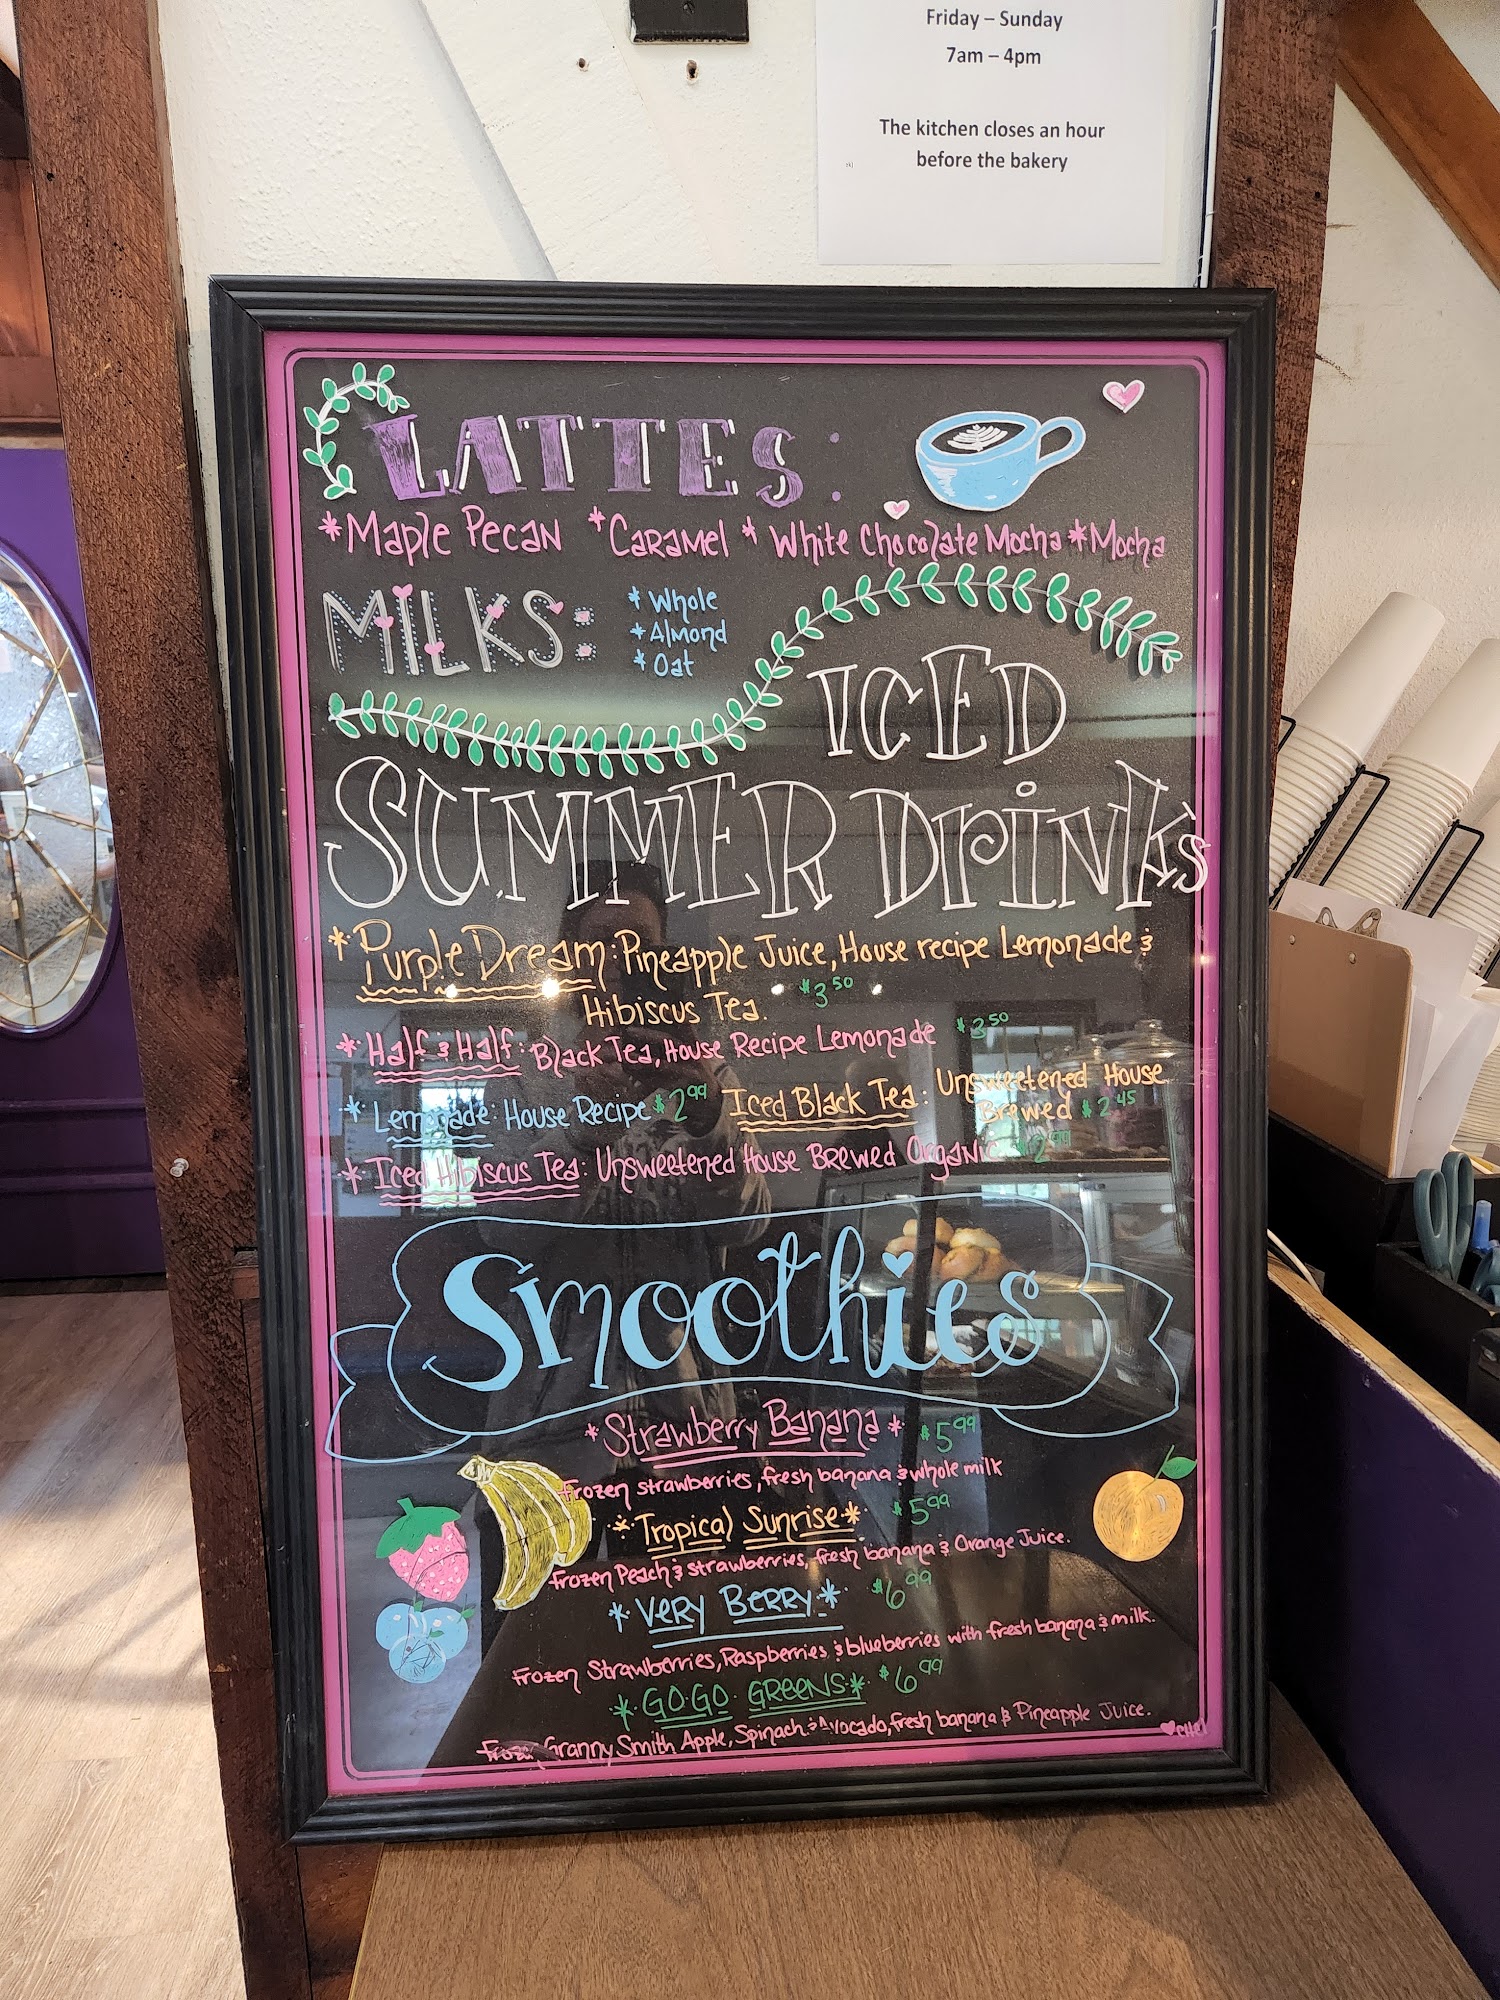 Friday – Sunday
7am – 4pm
The kitchen closes an hour
before the bakery
LATTES:
*Maple Pecan *Caramel *White Chocolate Mocha *Mocha
MILKS:
*Whole
*Almond
*Oat
ICED
SUMMER DrinKs
*Purple Dream: Pineapple Juice, House recipe Lemonade &
Hibiscus Tea. $3.50
*Half & Half: Black Tea, House Recipe Lemonade $3.50
*Lemonade: House Recipe $2.99 Iced Black Tea: Unsweetened House
Brewed $2.45
*Iced Hibiscus Tea: Unsweetened House Brewed Organic $2.99
Smoothies
*Strawberry Banana* $5.99
Frozen strawberries, fresh banana & whole milk
*Tropical Sunrise* $5.99
Frozen Peach & strawberries, fresh banana & Orange Juice.
*Very Berry* $6.99
Frozen Strawberries, Raspberries & blueberries with fresh banana & milk.
*GO·GO· GREENS* $6.99
Frozen Granny Smith Apple, Spinach & Avocado, fresh banana & Pineapple Juice.